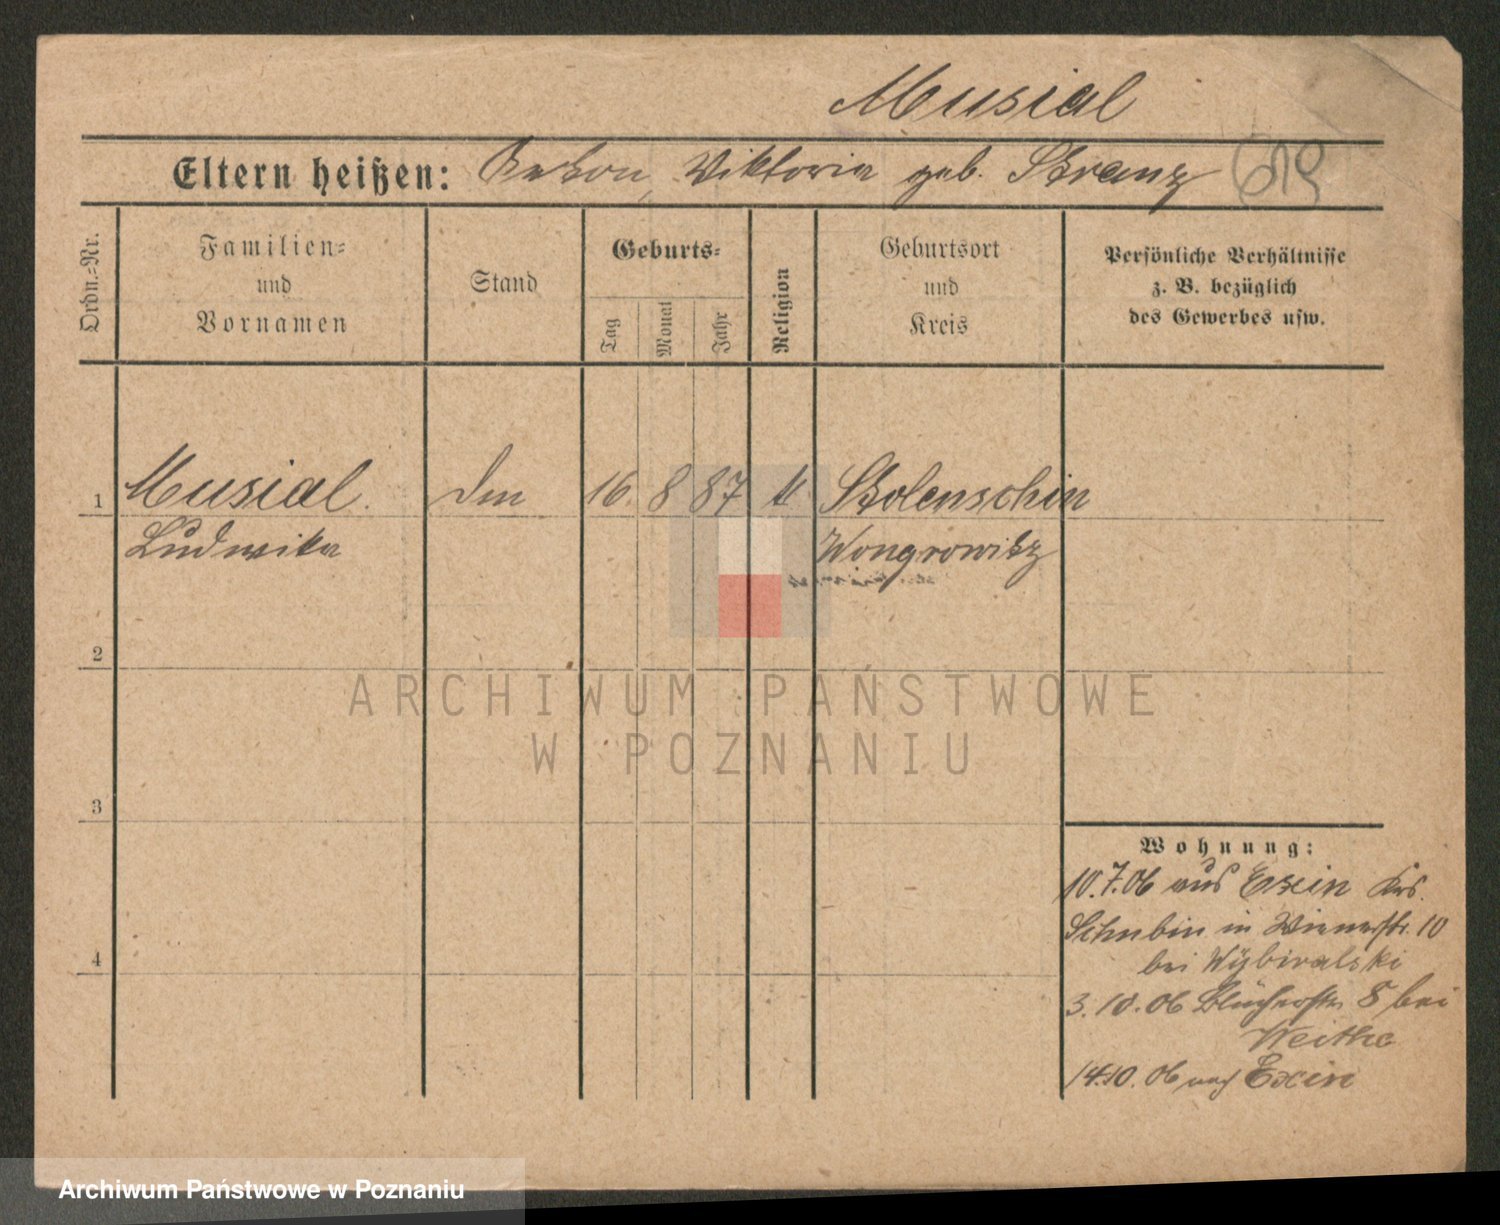 Musial
Eltern heißen: Anton, Viktoria geb. Skranz
619
Ordn.=Nr.
Familien=
und
Vornamen
Stand
Geburts=
Tag
Monat
Jahr
Religion
Geburtsort
und
Kreis
Persönliche Verhältnisse
z. B. bezüglich
des Gewerbes usw.
1 Musial. 16 8 87 k Stolenschin
Ludwika Wongrowitz
2
ARCHIWUM PAŃSTWOWE
W POZNANIU
3
Wohnung:
10.7.06 aus Exin Krs.
Schubin in Wienerstr. 10
bei Wybiralski
4
3.10.06 Blücherstr. 8 bei
Weithe
14.10.06 nach Exin
Archiwum Państwowe w Poznaniu